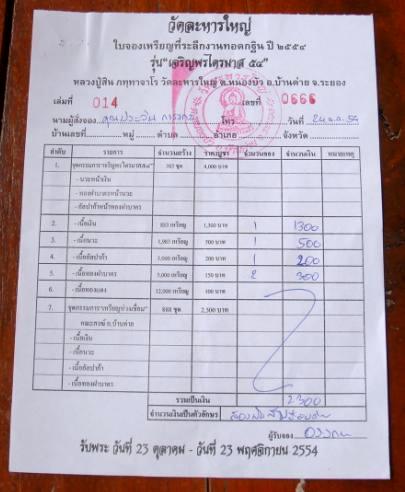 วัดละหารใหญ่
ใบจองเหรียญที่ระลึกงานทอดกฐิน ปี ๒๕๕๔
รุ่น"เจริญพรไตรมาส ๕๔"
หลวงปู่สิน ภทฺทาจาโร วัดละหารใหญ่ ต.หนองบัว อ.บ้านค่าย จ.ระยอง
เล่มที่ 014 เลขที่ 0666
นามผู้สั่งจอง คุณประวิน โทร วันที่ 24 ต.ค. 54
บ้านเลขที่ หมู่ ตำบล อำเภอ จังหวัด
ลำดับ รายการ จำนวนสร้าง ราคาบูชา จำนวนจอง จำนวนเงิน หมายเหตุ
1. ชุดกรรมการ"เจริญพรไตรมาส๕๔" 4,000 บาท
- นวะหน้าเงิน
- ทองฝาบาตรหน้านวะ
- อัลปาก้าหน้าทองฝาบาตร
2. - เนื้อเงิน 883 เหรียญ 1,300 บาท 1 1300
3. - เนื้อนวะ 1,983 เหรียญ 500 บาท 1 500
4. - เนื้ออัลปาก้า 3,000 เหรียญ 200 บาท 1 200
5. - เนื้อทองฝาบาตร 5,000 เหรียญ 150 บาท 2 300
6. - เนื้อทองแดง 12,000 เหรียญ 100 บาท
7. ชุดกรรมการ"เหรียญห่วงเชื่อม" 888 ชุด 2,500 บาท
คณะสงฆ์ อ.บ้านค่าย
- เนื้อเงิน
- เนื้อนวะ
- เนื้ออัลปาก้า
- เนื้อทองฝาบาตร
รวมเป็นเงิน 2300
จำนวนเงินเป็นตัวอักษร สองพันสามร้อยบาท
ผู้รับจอง
รับพระ วันที่ 23 ตุลาคม - วันที่ 23 พฤศจิกายน 2554